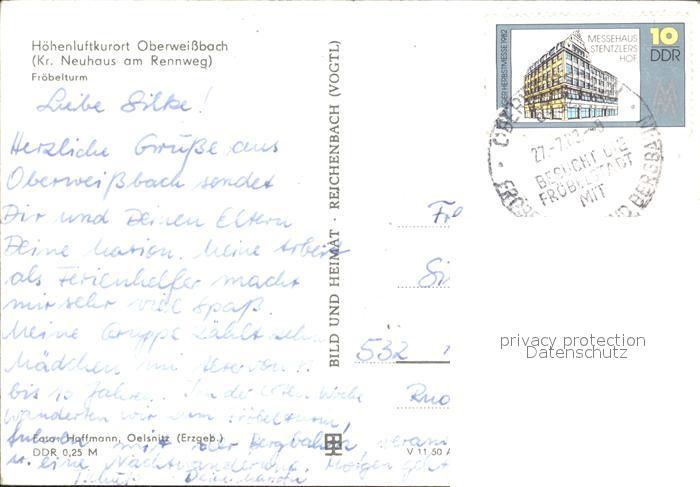 Höhenluftkurort Oberweißbach
(Kr. Neuhaus am Rennweg)
Fröbelturm
Liebe Silke!
Herzliche Grüße aus
Oberweißbach sendet
Dir und Deinen Eltern
Deine Marion. Meine Arbeit
als Ferienhelfer macht
mir sehr viel Spaß.
Meine Gruppe zählt zehn
Mädchen im
bis 10 Jahren. In der ersten Woche
wanderten wir zum Fröbelturm,
fuhren mit der Bergbahn
u. eine Nachtwanderung. Morgen geht
Deine Marion
Foto: Hoffmann, Oelsnitz (Erzgeb.)
DDR 0,25 M
BILD UND HEIMAT · REICHENBACH (VOGTL)
V 11 50 A
MESSEHAUS
STENTZLERS
HOF
10
DDR
HERBSTMESSE 1982
BESUCHT DIE
FRÖBELSTADT
MIT
UND BERGBA
532
privacy protection
Datenschutz